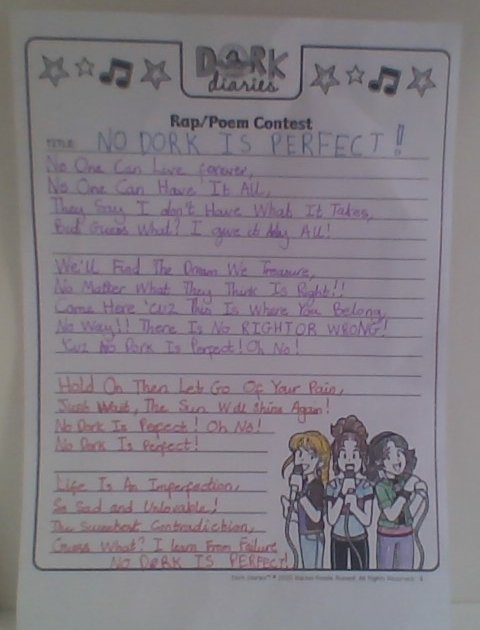 DORK
diaries
Rap/Poem Contest
TITLE: NO DORK IS PERFECT!
No One Can Live forever,
No One Can Have It All,
They Say I don't Have What It Takes,
But Guess What? I gave it My All!
We'll Find The Dream We Treasure,
No Matter What They Think Is Right!!
Come Here 'cuz This Is Where You Belong,
No Way!! There Is No RIGHT OR WRONG!
'Cuz No Dork Is Perfect! Oh No!
Hold On Then Let Go Of Your Pain,
Just Wait, The Sun Will Shine Again!
No Dork Is Perfect! Oh No!
No Dork Is Perfect!
Life Is An Imperfection,
So Sad and Unlovable!
The Sweetest Contradiction,
Guess What? I learn From Failure
NO DORK IS PERFECT!
Dork Diaries™ © 2010 Rachel Renée Russell. All Rights Reserved.